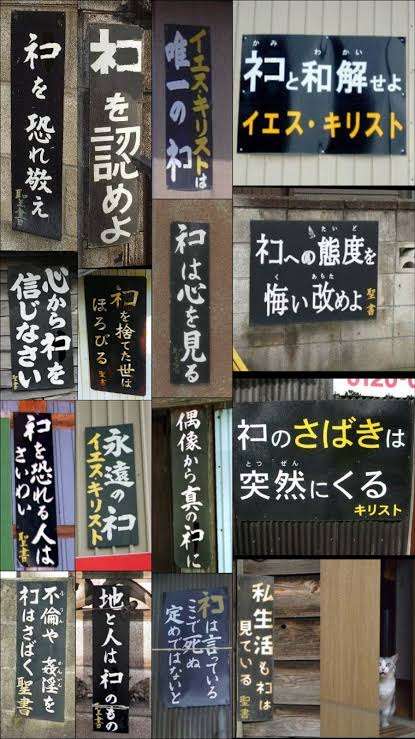 ネコを恐れ敬え
聖書
ネコを認めよ
イエス・キリストは
唯一のネコ
かみ わかい
ネコと和解せよ
イエス・キリスト
心からネコを
信じなさい
聖書
ネコを捨てた世は
ほろびる
聖書
ネコは心を見る
たいど
ネコへの態度を
く あらた
悔い改めよ
聖書
ネコを恐れる人は
さいわい
聖書
永遠のネコ
イエスキリスト
偶像から真のネコに
0120-0
ネコのさばきは
とつぜん
突然にくる
キリスト
不倫や姦淫を
かんいん
ネコはさばく
聖書
地と人はネコのもの
聖書
ネコは言っている
ここで死ぬ
定めではないと
私生活もネコは
見ている
聖書